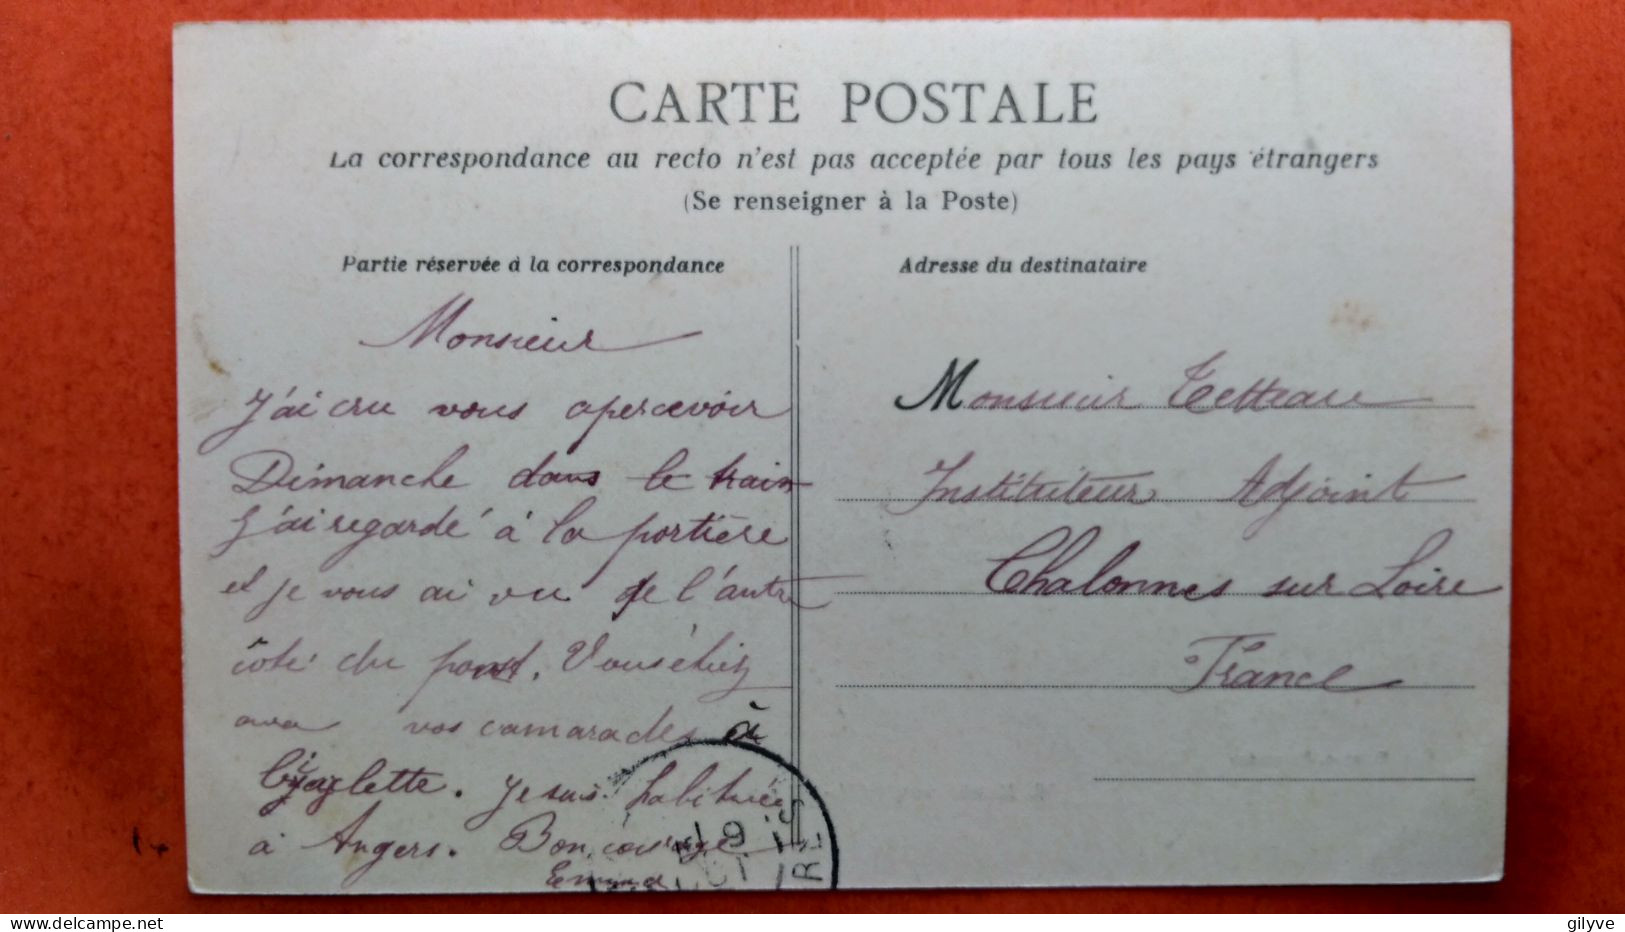 CARTE POSTALE
La correspondance au recto n'est pas acceptée par tous les pays étrangers
(Se renseigner à la Poste)
Partie réservée à la correspondance
Adresse du destinataire
Monsieur
J'ai cru vous apercevoir
Dimanche dans le train
J'ai regardé à la portière
et je vous ai vu de l'autre
côté du pont. Vous étiez
avec vos camarades à
biyclette. Je suis habituée
à Angers. Bon courage
Emma
Monsieur Tetteau
Instituteur Adjoint
Chalonnes sur Loire
France
delcampe.net
gilyve